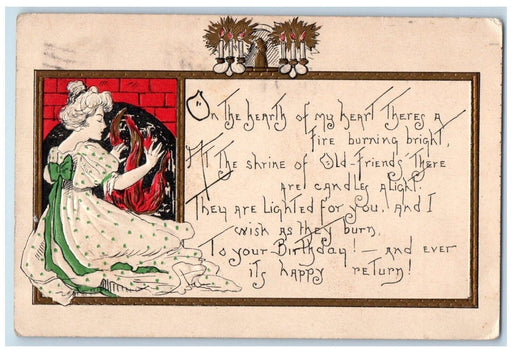 On the hearth of my heart there's a
fire burning bright,
At the shrine of Old-Friends There
are candles alight.
They are Lighted for you, and I
wish as they burn,
To your Birthday! - and ever
its happy return!